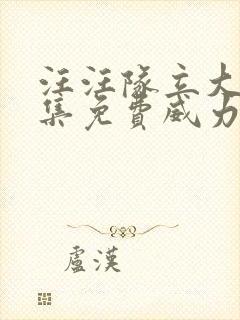 汪汪隊立大
集免費威力
盧漢